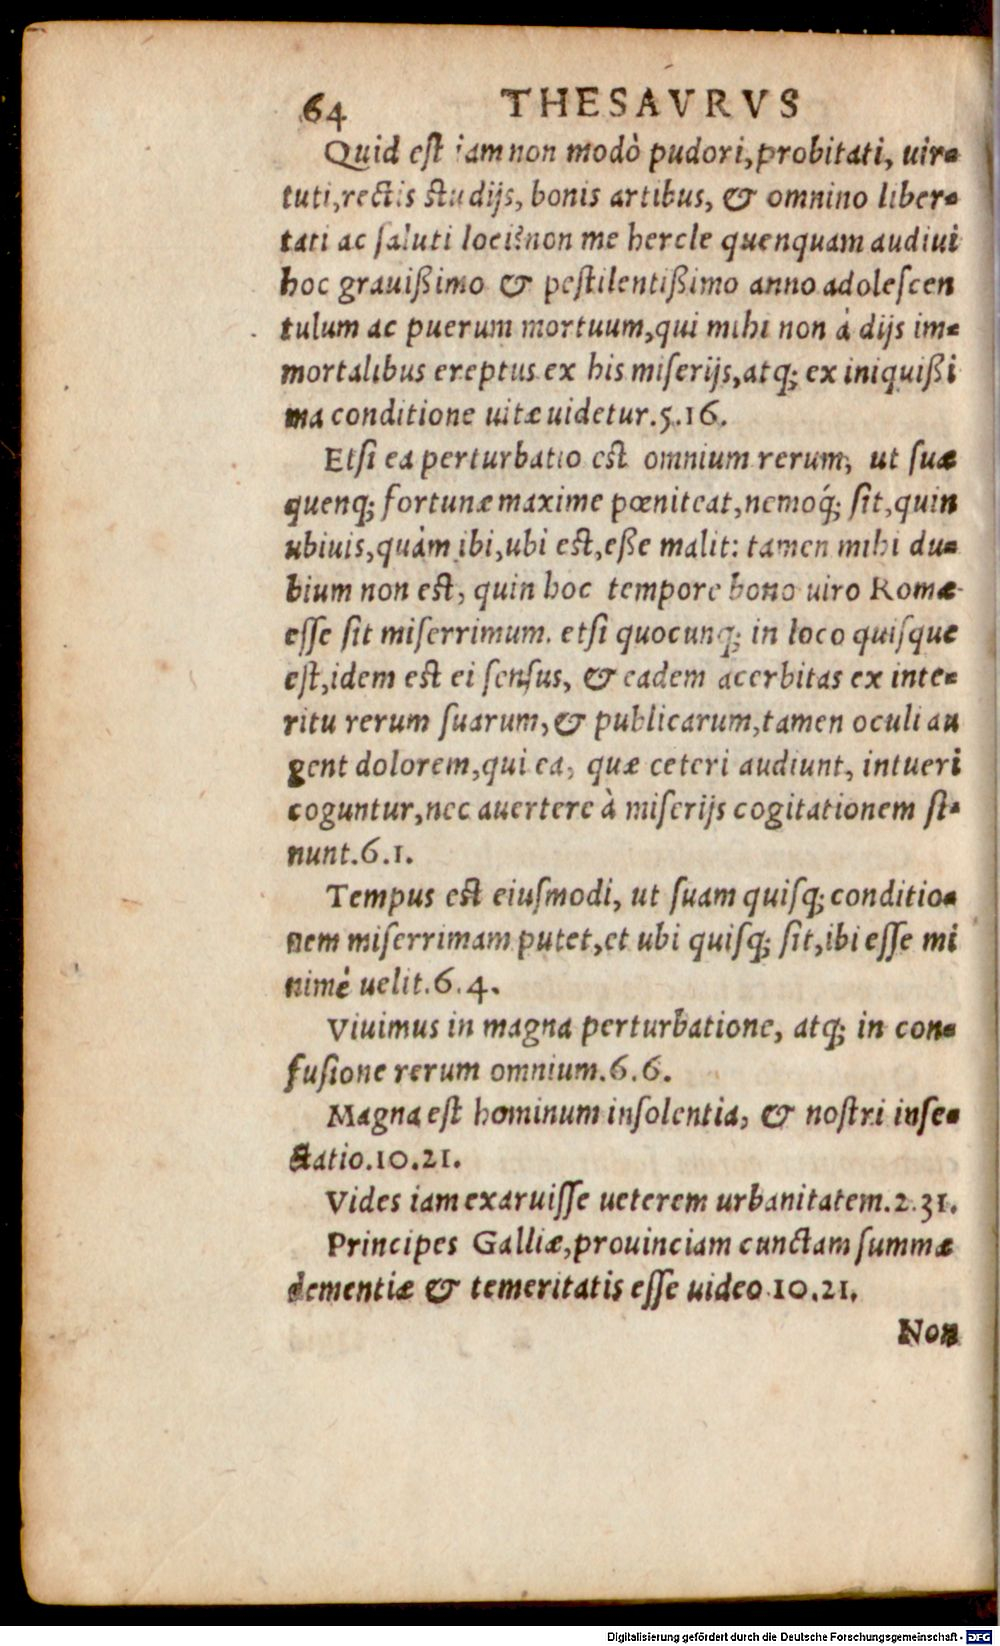 64 THESAVRVS
Quid est iam non modò pudori, probitati, uir-
tuti, rectis studijs, bonis artibus, & omnino liber-
tati ac saluti loci? non me hercle quenquam audiui
hoc grauißimo & pestilentißimo anno adolescen
tulum ac puerum mortuum, qui mihi non à dijs im-
mortalibus ereptus ex his miserijs, atq; ex iniquißi
ma conditione uitæ uidetur. 5.16.
Etsi ea perturbatio est omnium rerum, ut suæ
quenq; fortunæ maxime pœniteat, nemoq́; sit, quin
ubiuis, quàm ibi, ubi est, eße malit: tamen mihi du-
bium non est, quin hoc tempore bono uiro Romæ
esse sit miserrimum. etsi quocunq; in loco quisque
est, idem est ei sensus, & eadem acerbitas ex inte-
ritu rerum suarum, & publicarum, tamen oculi au
gent dolorem, qui ea, quæ ceteri audiunt, intueri
coguntur, nec auertere à miserijs cogitationem si-
nunt. 6.1.
Tempus est eiusmodi, ut suam quisq; conditio-
nem miserrimam putet, et ubi quisq; sit, ibi esse mi
nimè uelit. 6.4.
Viuimus in magna perturbatione, atq; in con-
fusione rerum omnium. 6.6.
Magna est hominum insolentia, & nostri inse-
ctatio. 10.21.
Vides iam exaruisse ueterem urbanitatem. 2.31.
Principes Galliæ, prouinciam cunctam summæ
dementiæ & temeritatis esse uideo 10.21.
Non
Digitalisierung gefördert durch die Deutsche Forschungsgemeinschaft - DFG